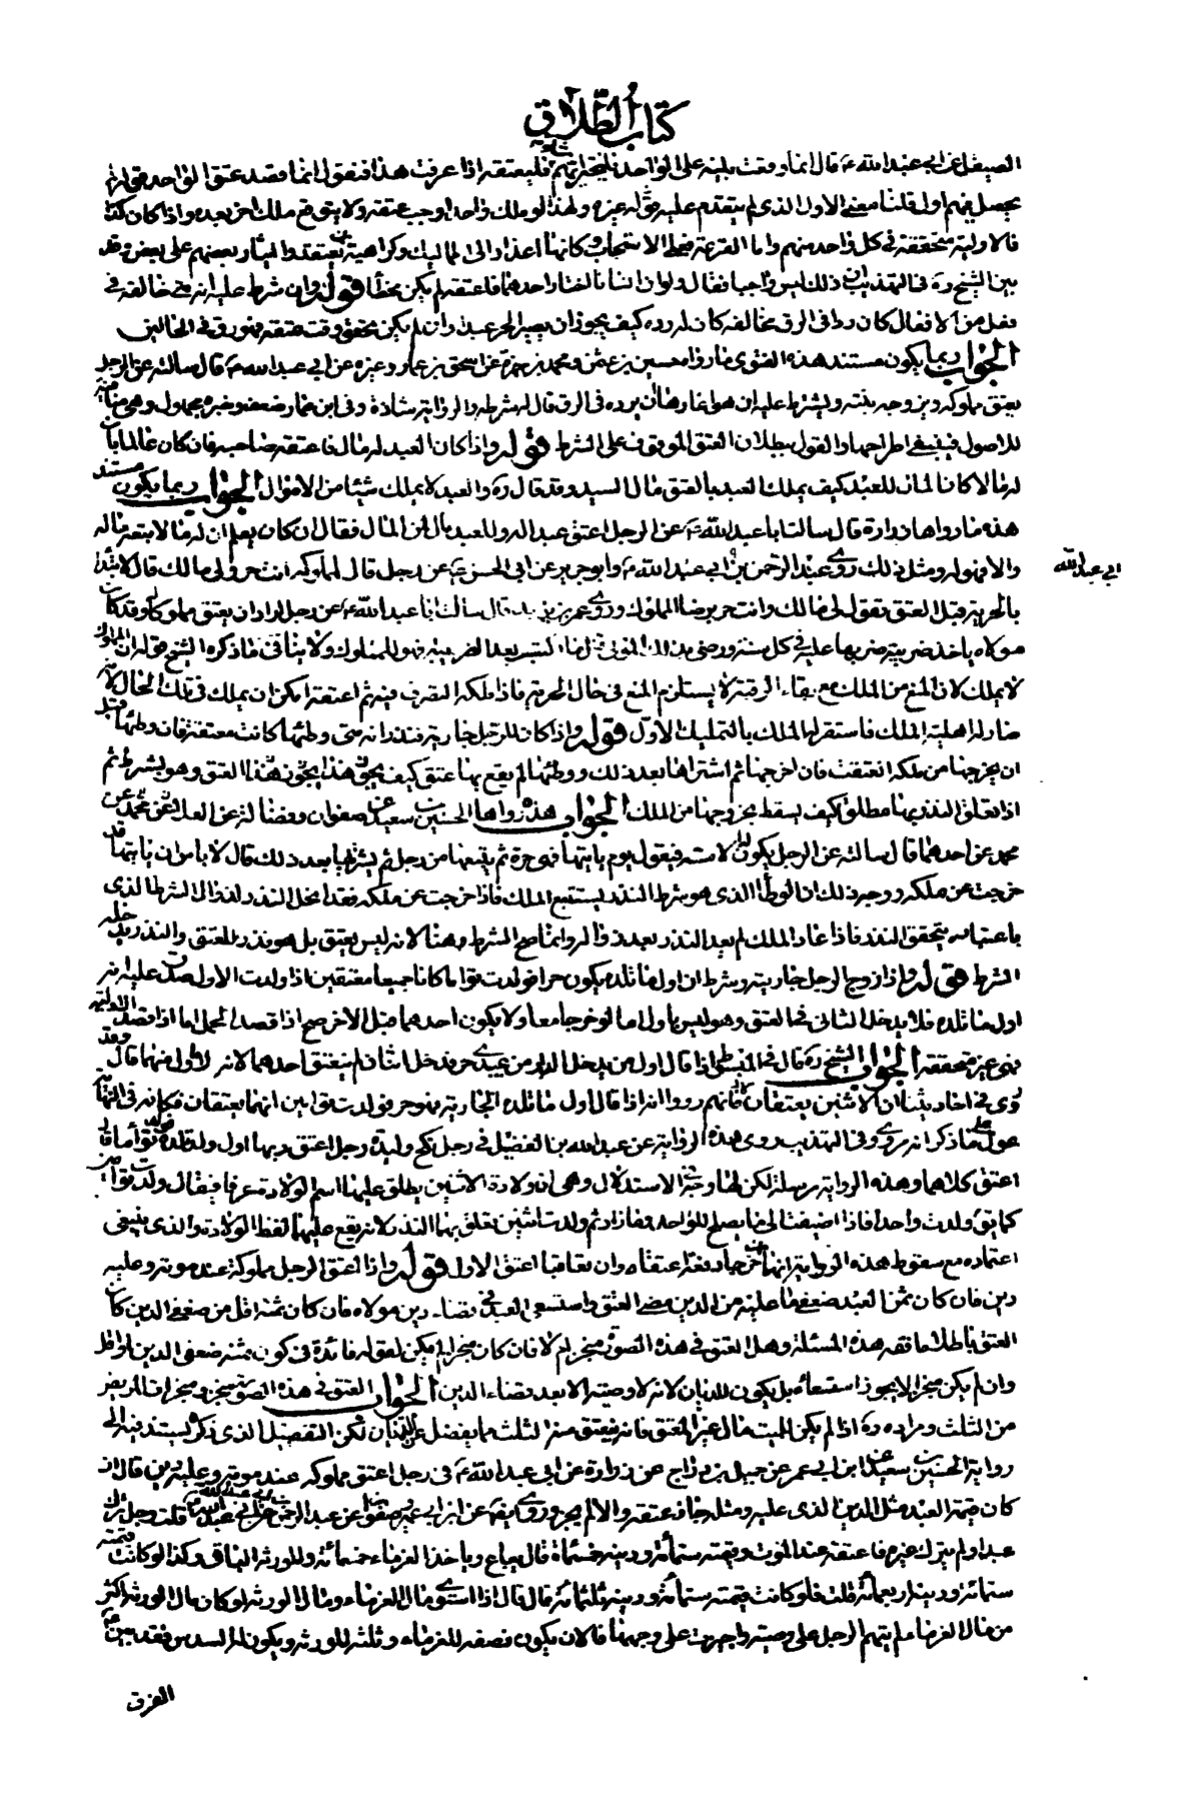 كتاب الطلاق
الصيقل عن ابي عبد الله ع قال انما وقعت بليته على الواحد فليختر ايهم شاء فليعتقه اذا عرفت هذا فنقول انما قصد عتق الواحد قوله لم
يحصل فيهم اول قلنا معنى الاول الذى لم يتقدم عليه غيره ولهذا لو ملك واحدا وجب عتقه ولا يتوقع ملك اخر بعده واذا كان كذا
فالاولية متحققة فى كل واحد منهم واما القرعة فعلى الاستحباب وكانها اعذار الى المماليك وكراهية ان يعتقدوا ايثار بعضهم على بعض وقد
بين الشيخ ره فى التهذيب ان ذلك ليس واجبا فقال ولو ان انسانا اختار احدهم فاعتقه لم يكن مخطأ قوله وان شرط عليه انه متى خالفه فى
فعل من الافعال كان ردا فى الرق فخالفه كان له رده كيف يجوز ان يصير الحر عبدا وان لم يكن تحقق وقت عتقه فهو رق فى الحالين
الجواب ربما يكون مستند هذه الفتوى ما رواه حسين بن عثمن ومحمد بن حمزة عن اسحق بن عمار وغيره عن ابي عبد الله ع قال سالته عن الرجل
يعتق مملوكه ويزوجه بنته ويشترط عليه ان هو اغارها ان يرده فى الرق قال له شرطه والرواية شاذة وفى ابن عمار ضعف وغيره مجهول وهى منافية
للاصول فينبغى اطراحها والقول ببطلان العتق الموقوف على الشرط قوله واذا كان العبد له مال فاعتقه صاحبه فان كان عالما بان
له مالا كان المال للعبد كيف يملك العبد بالعتق مال السيد وقد قال ره والعبد لا يملك شيئا من الاموال الجواب ربما يكون مستند
هذه ما رواها زرارة قال سالت ابا عبد الله ع عن الرجل اعتق عبدا له وللعبد مال لمن المال فقال ان كان يعلم ان له مالا تبعه ماله
والا فهو له ومثل ذلك روى عبد الرحمن بن ابي عبد الله ع وابو جرير عن ابى الحسن ع عن رجل قال لمملوكه انت حر ولى مالك قال لا يبدا
ابي عبد الله
بالحرية قبل العتق يقول لى مالك وانت حر برضا المملوك وروى عمر بن يزيد قال سالت ابا عبد الله ع عن رجل اراد ان يعتق مملوكا له وقد كان
مولاه ياخذ ضريبة ضربها عليه فى كل سنة ورضى بذلك المولى قال ما اكتسب بعد الفريضة فهو للمملوك ولا ينافى ما ذكره الشيخ قوله ان المملوك
لا يملك لان المنع من الملك مع بقاء الرقية لا يستلزم المنع فى حال الحرية فاذا ملكه التصرف فيه ثم اعتقه امكن ان يملك فى تلك الحال لانه
صار له اهلية الملك فاستقر له الملك بالتمليك الاول قوله واذا كان للرجل جارية فنذر انه متى وطئها كانت معتقة فان وطئها قبل
ان يخرجها من ملكه انعتقت فان اخرجها ثم اشتراها بعد ذلك ووطئها لم يقع بها عتق كيف يحق هذا يجوز هذا العتق وهو بشرط ثم
اذا تعلق النذر بها مطلقا كيف يسقط بخروجها من الملك الجواب هذه رواها الحسين بن سعيد عن صفوان وفضالة عن العلا عن محمد عن
محمد عن احدهما قال سالته عن الرجل يكون له الامة فيقول يوم ياتيها فهى حرة ثم يبيعها من رجل ثم يشتريها بعد ذلك قال لا باس ان ياتيها قد
خرجت عن ملكه ووجه ذلك ان الوطأ الذى هو شرط النذر يستتبع الملك فاذا خرجت عن ملكه فقد انحل النذر لفوات الشرط الذى
باعتباره يتحقق النذر فاذا عاد الملك لم يعد النذر بعد زواله وانما صح الشرط هنا لانه ليس بعتق بل هو نذر للعتق والنذر يدخله
الشرط قوله واذا زوج الرجل جاريته وشرط ان اول ما تلده يكون حرا فولدت تواما كانا جميعا معتقين اذا ولدت الاول صدق عليه انه
اول ما تلده فلا يدخل الثانى فى العتق وهو ليس باول اما لو خرجا معا ولا يكون احدهما قبل الاخر صح اذا قصد الحمل اما اذا قصد الاولية
فهى غير متحققة الجواب الشيخ ره قال فى المبسوط اذا قال اول من يدخل الدار من عبيدى حر فدخل اثنان لم ينعتق احدهما لانه لا اول منهما قال وقد
روى فى احاديثنا ان الاثنين يعتقان لانهم رووا انه اذا قال اول ما تلده الجارية فهو حر فولدت توامين انهما يعتقان فكانه فى النهاية
عول على ما ذكر انه مروى وفى التهذيب روى هذه الرواية عن عبد الله بن الفضيل فى رجل نكح وليدة رجل اعتق ربها اول ولد تلده فولدت توأما قال
اعتق كلاهما وهذه الرواية مرسلة لكن لها وجه فى الاستدلال وهى ان ولادة الاثنين يطلق عليهما اسم الولادة عرفا فيقال ولدت توامين
كما يق ولدت واحدا فاذا اضيفت الى ما يصلح للواحد فما زاد ثم ولدت اثنين تعلق بهما النذر لانه يقع عليهما لفظ الولادة والذى ينبغى
اعتماده مع سقوط هذه الرواية انهما ان خرجا دفعة اعتقا وان تعاقبا اعتق الاول قوله واذا اعتق الرجل مملوكه عند موته وعليه
دين فان كان ثمن العبد ضعفى ما عليه من الدين مضى العتق واستسعى العبد فى قضاء دين مولاه فان كان ثمنه اقل من ضعفى الدين كان
العتق باطلا ما فقه هذه المسئلة وهل العتق فى هذه الصورة منجز ام لا فان كان منجزا لم يكن لقوله فائدة فى كون ثمنه ضعفى الدين او اقل
وان لم يكن منجزا لا يجوز استسعائه بل يكون للديان لانه لا وصية الا بعد قضاء الدين الجواب العتق فى هذه الصورة منجز ومنجزات المريض
من الثلث ومراده ره اذا لم يكن للميت مال غير المعتق فانه ينعتق منه الثلث مما يفضل عن الديان لكن التفصيل الذى ذكره يستند فيه الى
رواية الحسين بن سعيد عن ابن ابى عمير عن جميل بن دراج عن زرارة عن ابى عبد الله ع فى رجل اعتق مملوكه عند موته وعليه دين قال ان
كان قيمة العبد مثل الدين الذى عليه ومثله جاز عتقه والا لم يجز وروى ايضا عن ابن ابى عمير وصفوان عن عبد الرحمن عن ابى عبد الله ع قلت رجل ترك
عبدا ولم يترك غيره فاعتقه عند الموت وقيمته ستمائة ودينه خمسمائة قال يباع وياخذ الغرماء خمسمائة وللورثة الباقى وكذا لو كانت قيمته
ستمائة ودينه اربعمائة قلت فلو كانت قيمته ستمائة ودينه ثلثمائة قال قال اذا استوى مال الغرماء ومال الورثة او كان مال الورثة اكثر
من مال الغرماء لم يتهم الرجل على وصيته واجيزت على وجهها فالان يكون نصفه للغرماء وثلثه للورثة ويكون له السدس فقد بين ع
الفرق